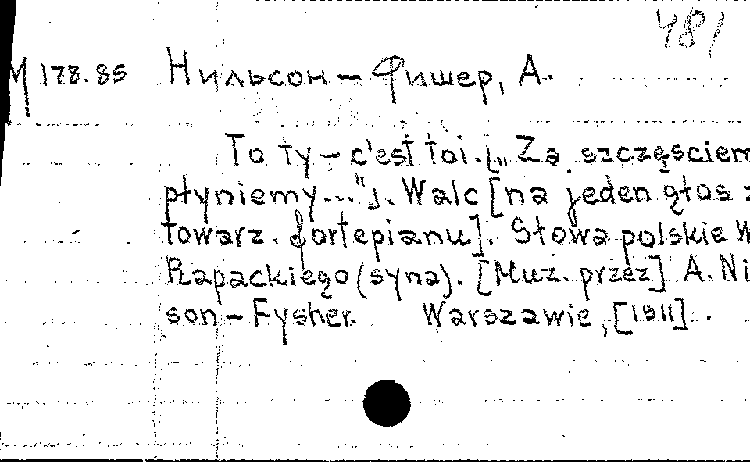 481
М 178.85 Нильсон – Фишер, А.
To ty – c'est toi. [„Za szczęściem
płyniemy..."]. Walc [na jeden głos z
towarz. fortepianu]. Słowa polskie W
Rapackiego (syna). [Muz. przez] A. Ni
son – Fysher. Warszawie, [1911].